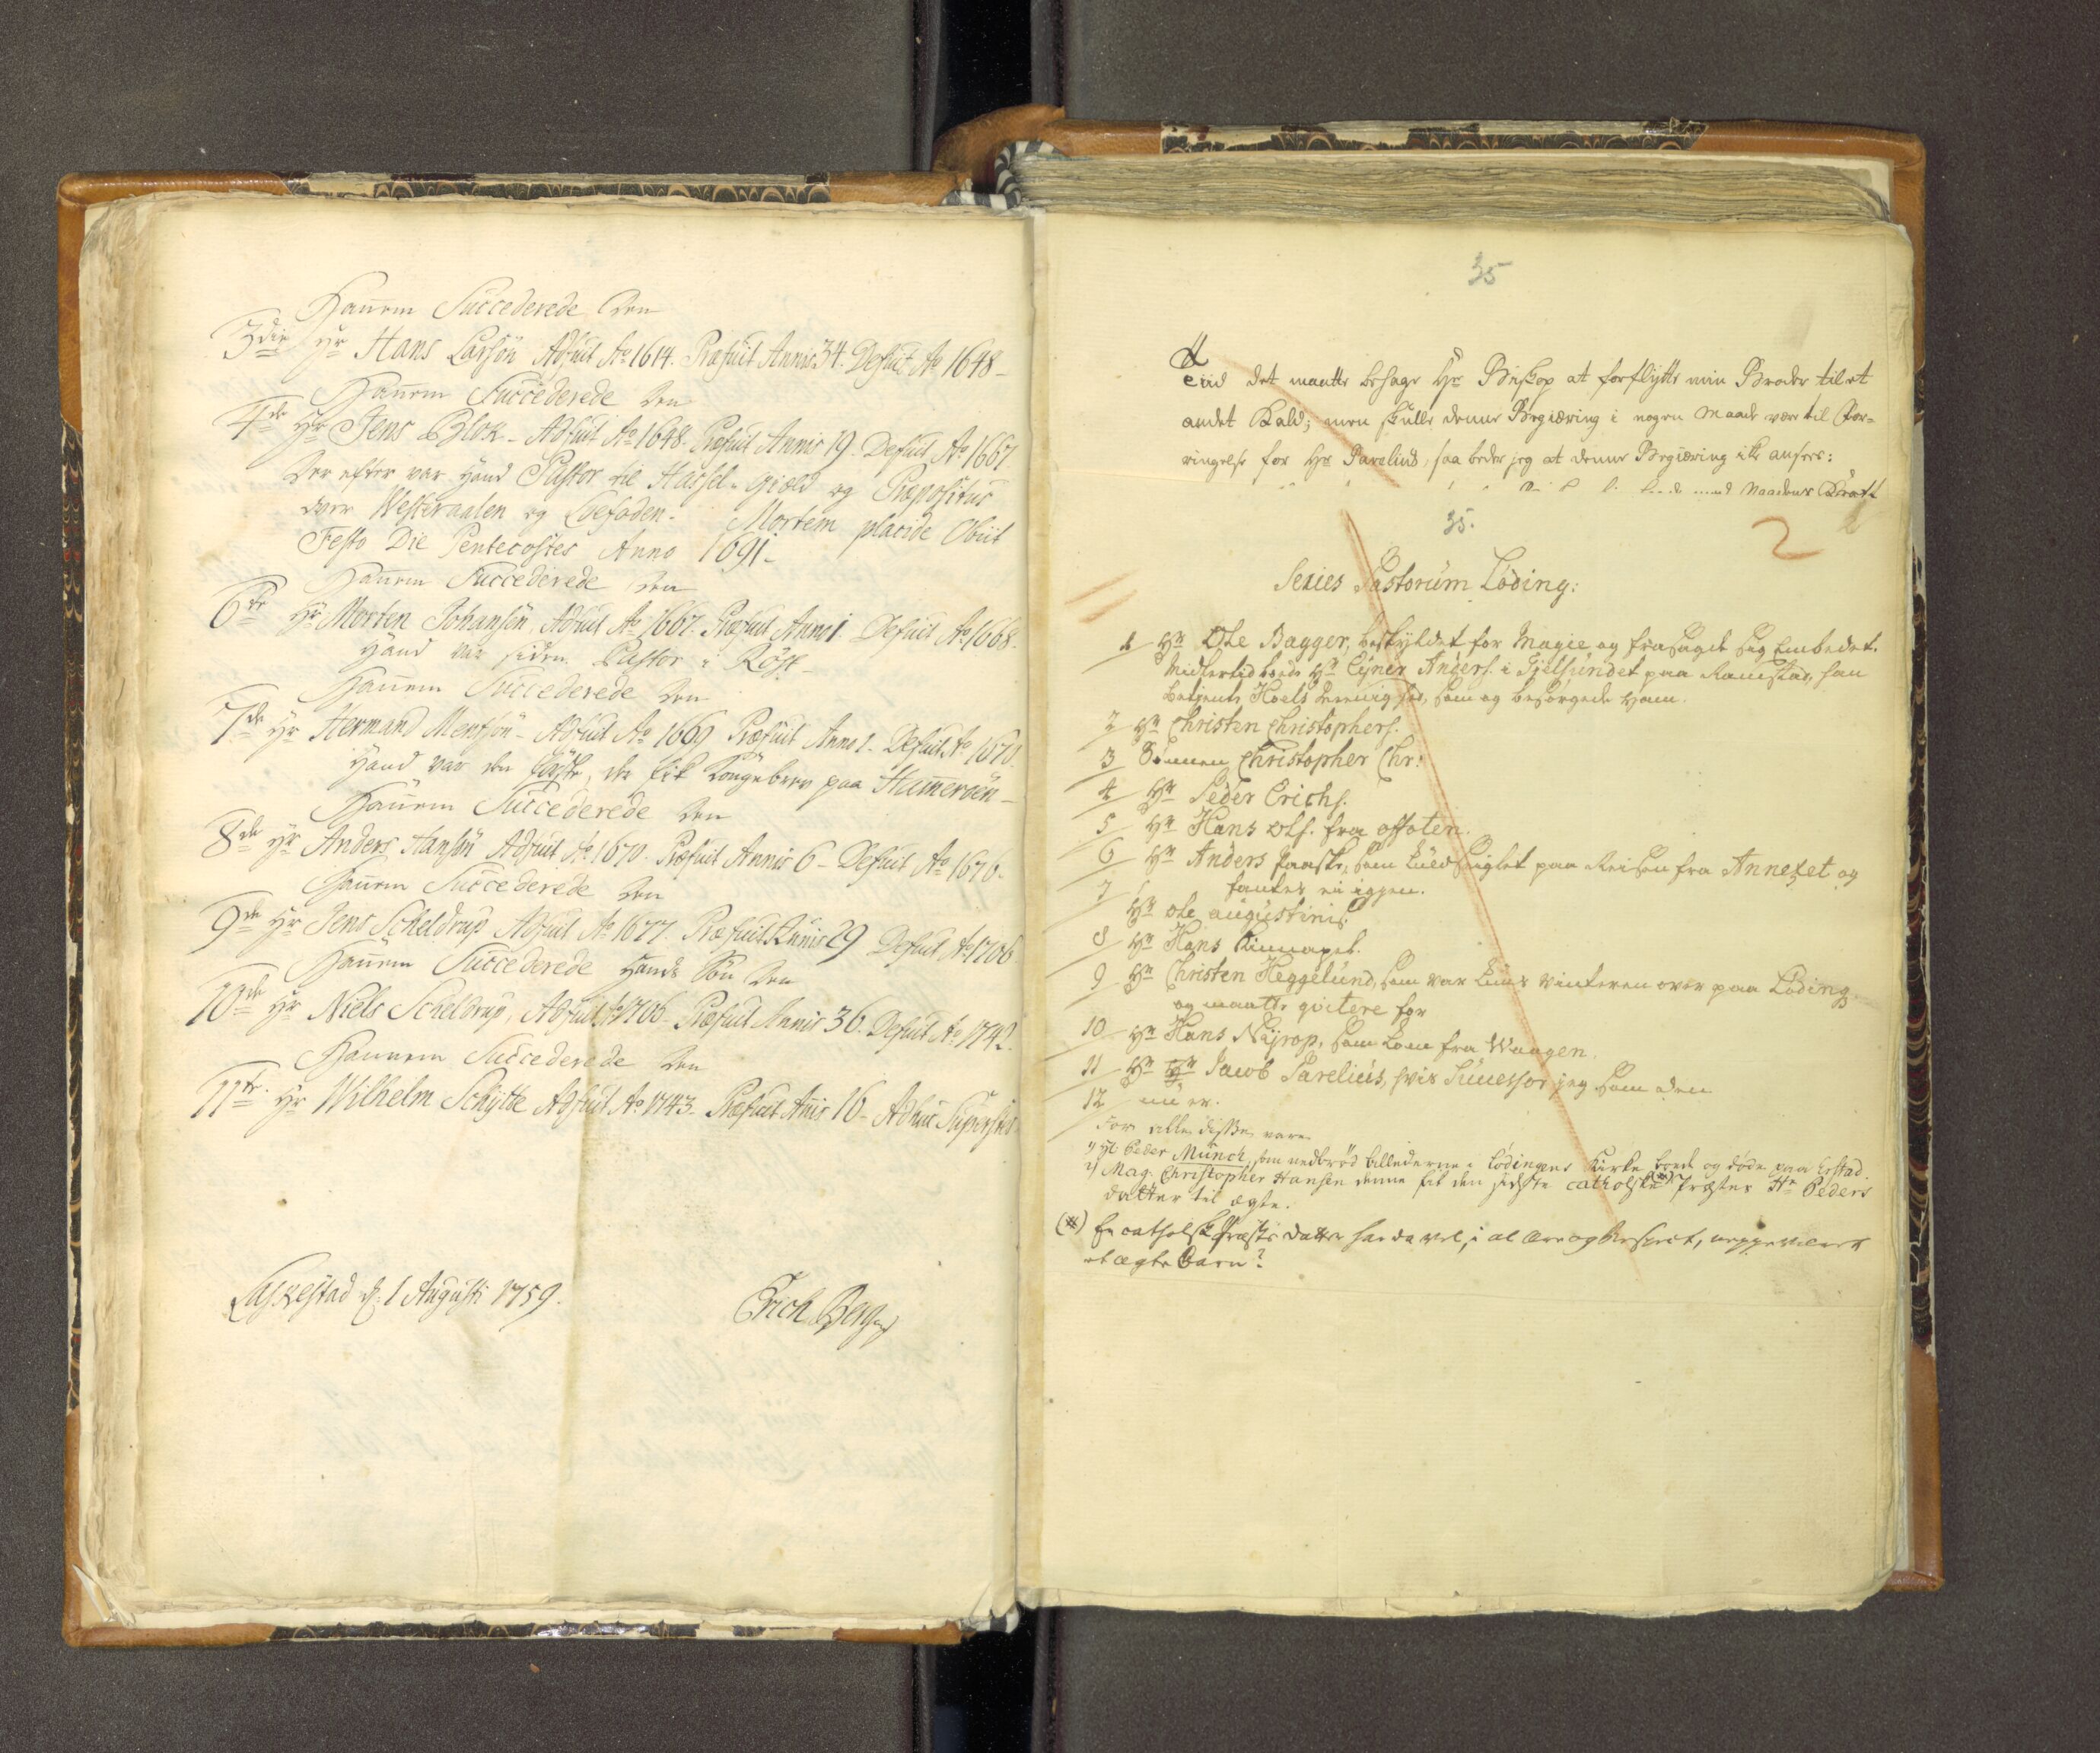 Hannem Succederede den
3die Hr Hans Larsön Adfuit Ao 1614. Præfuit Annis 34. Defuit Ao 1648
Hannem Succederede den
4de Hr Jens Blok - Adfuit Ao 1648. Præfuit Annis 19. Defuit Ao 1667
Der efter var Hand Pastor til Hassel-Giæld og Præpositus
over Westeraalen og Loefoden. Mortem placide Obiit
Festo Die Pentecostes Anno 1691.
Hannem Succederede den
6te Hr Morten Johansön, Adfuit Ao 1667. Præfuit Anno 1. Defuit Ao 1668.
Hand var siden Pastor i Röst
Hannem Succederede den
7de Hr Hermand Mentsön - Adfuit Ao 1669 Præfuit Anno 1. Defuit Ao 1670.
Hand var den förste, der fik Kongebrev paa Hammeröen
Hannem Succederede den
8de Hr Anders Hansön Adfuit Ao 1670. Præfuit Annis 6 - Defuit Ao 1676.
Hannem Succederede den
9de Hr Jens Scheldrup Adfuit Ao 1677. Præfuit Annis 29 Defuit Ao 1706
Hannem Succederede Hands Sön den
10de Hr Niels Scheldrup, Adfuit Ao 1706 Præfuit Annis 36. Defuit Ao 1742.
Hannem Succederede den
11te Hr Wilhelm Schytte Adfuit Ao 1743. Præfuit Anis 16 - Adhuc Superstes
Laskestad d: 1 Augusti 1759.
Erich Berg
35
det maatte behage Hr Biskop at forflytte min Broder til et
andet Kald; men skulle denne Begiæring i nogen Maade være til For=
ringelse for Hr Parelius, saa beder jeg at denne Begiæring ikke ansees:
Naadens
35.
2
Series Pastorum Löding:
1 Hr Ole Bagger, beskyldet for Magie og frasagde sig Embedet.
Midlertid boede Hr Eyner Anders. i Tjelsundet paa Ramstad, han
betiente Hoels Menighed, som og besörgede ham.
2 Hr Christen Christophers.
3 Sönnen Christopher Chr:
4 Hr Peder Erichs.
5 Hr Hans Ols. fra Ofoten.
6 Hr Anders Paaske, som paa Reisen fra Annexet og
fantes ei igien.
7 Hr Ole Augustinis.
8 Hr Hans
9 Hr Christen Heggelund, som var kuns vinteren over paa Löding,
og maatte qvitere for
10 Hr Hans Nyrop, som kom fra Waagen.
11 Hr Jacob Parelius, hvis Successor jeg som den
12 nu er.
For alle disse vare
1) Hr Peder Munch, som nedbröd billederne i Lödingens Kirke boede og döde paa Erstad.
2) Mag. Christopher Hansen denne fik den sidste catholske (*) Præstes Hr Peders
datter til ægte.
(*) En catholsk Præsts datter har da vel, i al Ære og Respect, neppe været
et ægte Barn?